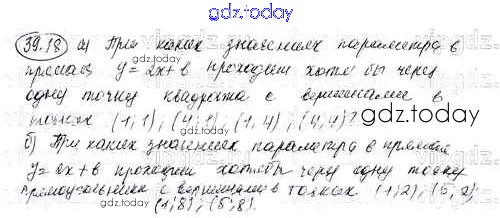 gdz.today
39.18 а) При каких значениях параметра в
прямая y=2x+в проходит хотя бы через
одну точку квадрата с вершинами в
точках (1,1); (4,1); (1,4); (4,4)?
gdz.today
б) При каких значениях параметра в прямая
y=2x+в проходит хотябы через одну точку
прямоугольника с вершинами в точках (1,2), (5,2),
(1,8), (5,8).
gdz.today